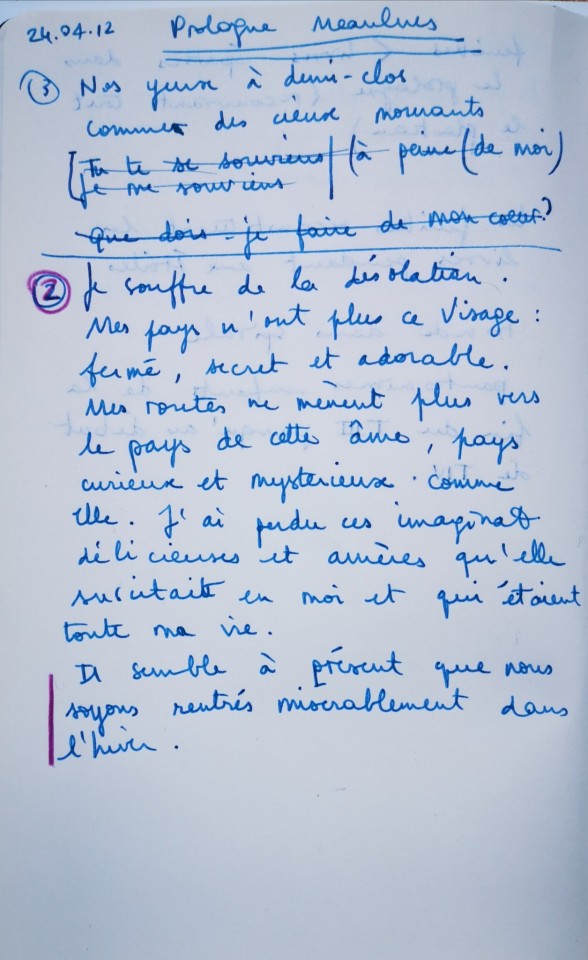 24.04.12 Prologue Meaulnes
③ Nos yeux à demi-clos
comme des cieux mourants
[Tu te se souviens | (à peine (de moi)
Je me souviens
que dois-je faire de mon coeur?
② Je souffre de la désolation.
Mes pays n'ont plus ce Visage :
fermé, secret et adorable.
Mes routes ne mènent plus vers
le pays de cette âme, pays
curieux et mysterieux comme
Elle. J'ai perdu ces imaginat°
délicieuses et amères qu'elle
suscitait en moi et qui étaient
toute ma vie.
Il semble à présent que nous
soyons rentrés miserablement dans
l'hiver.